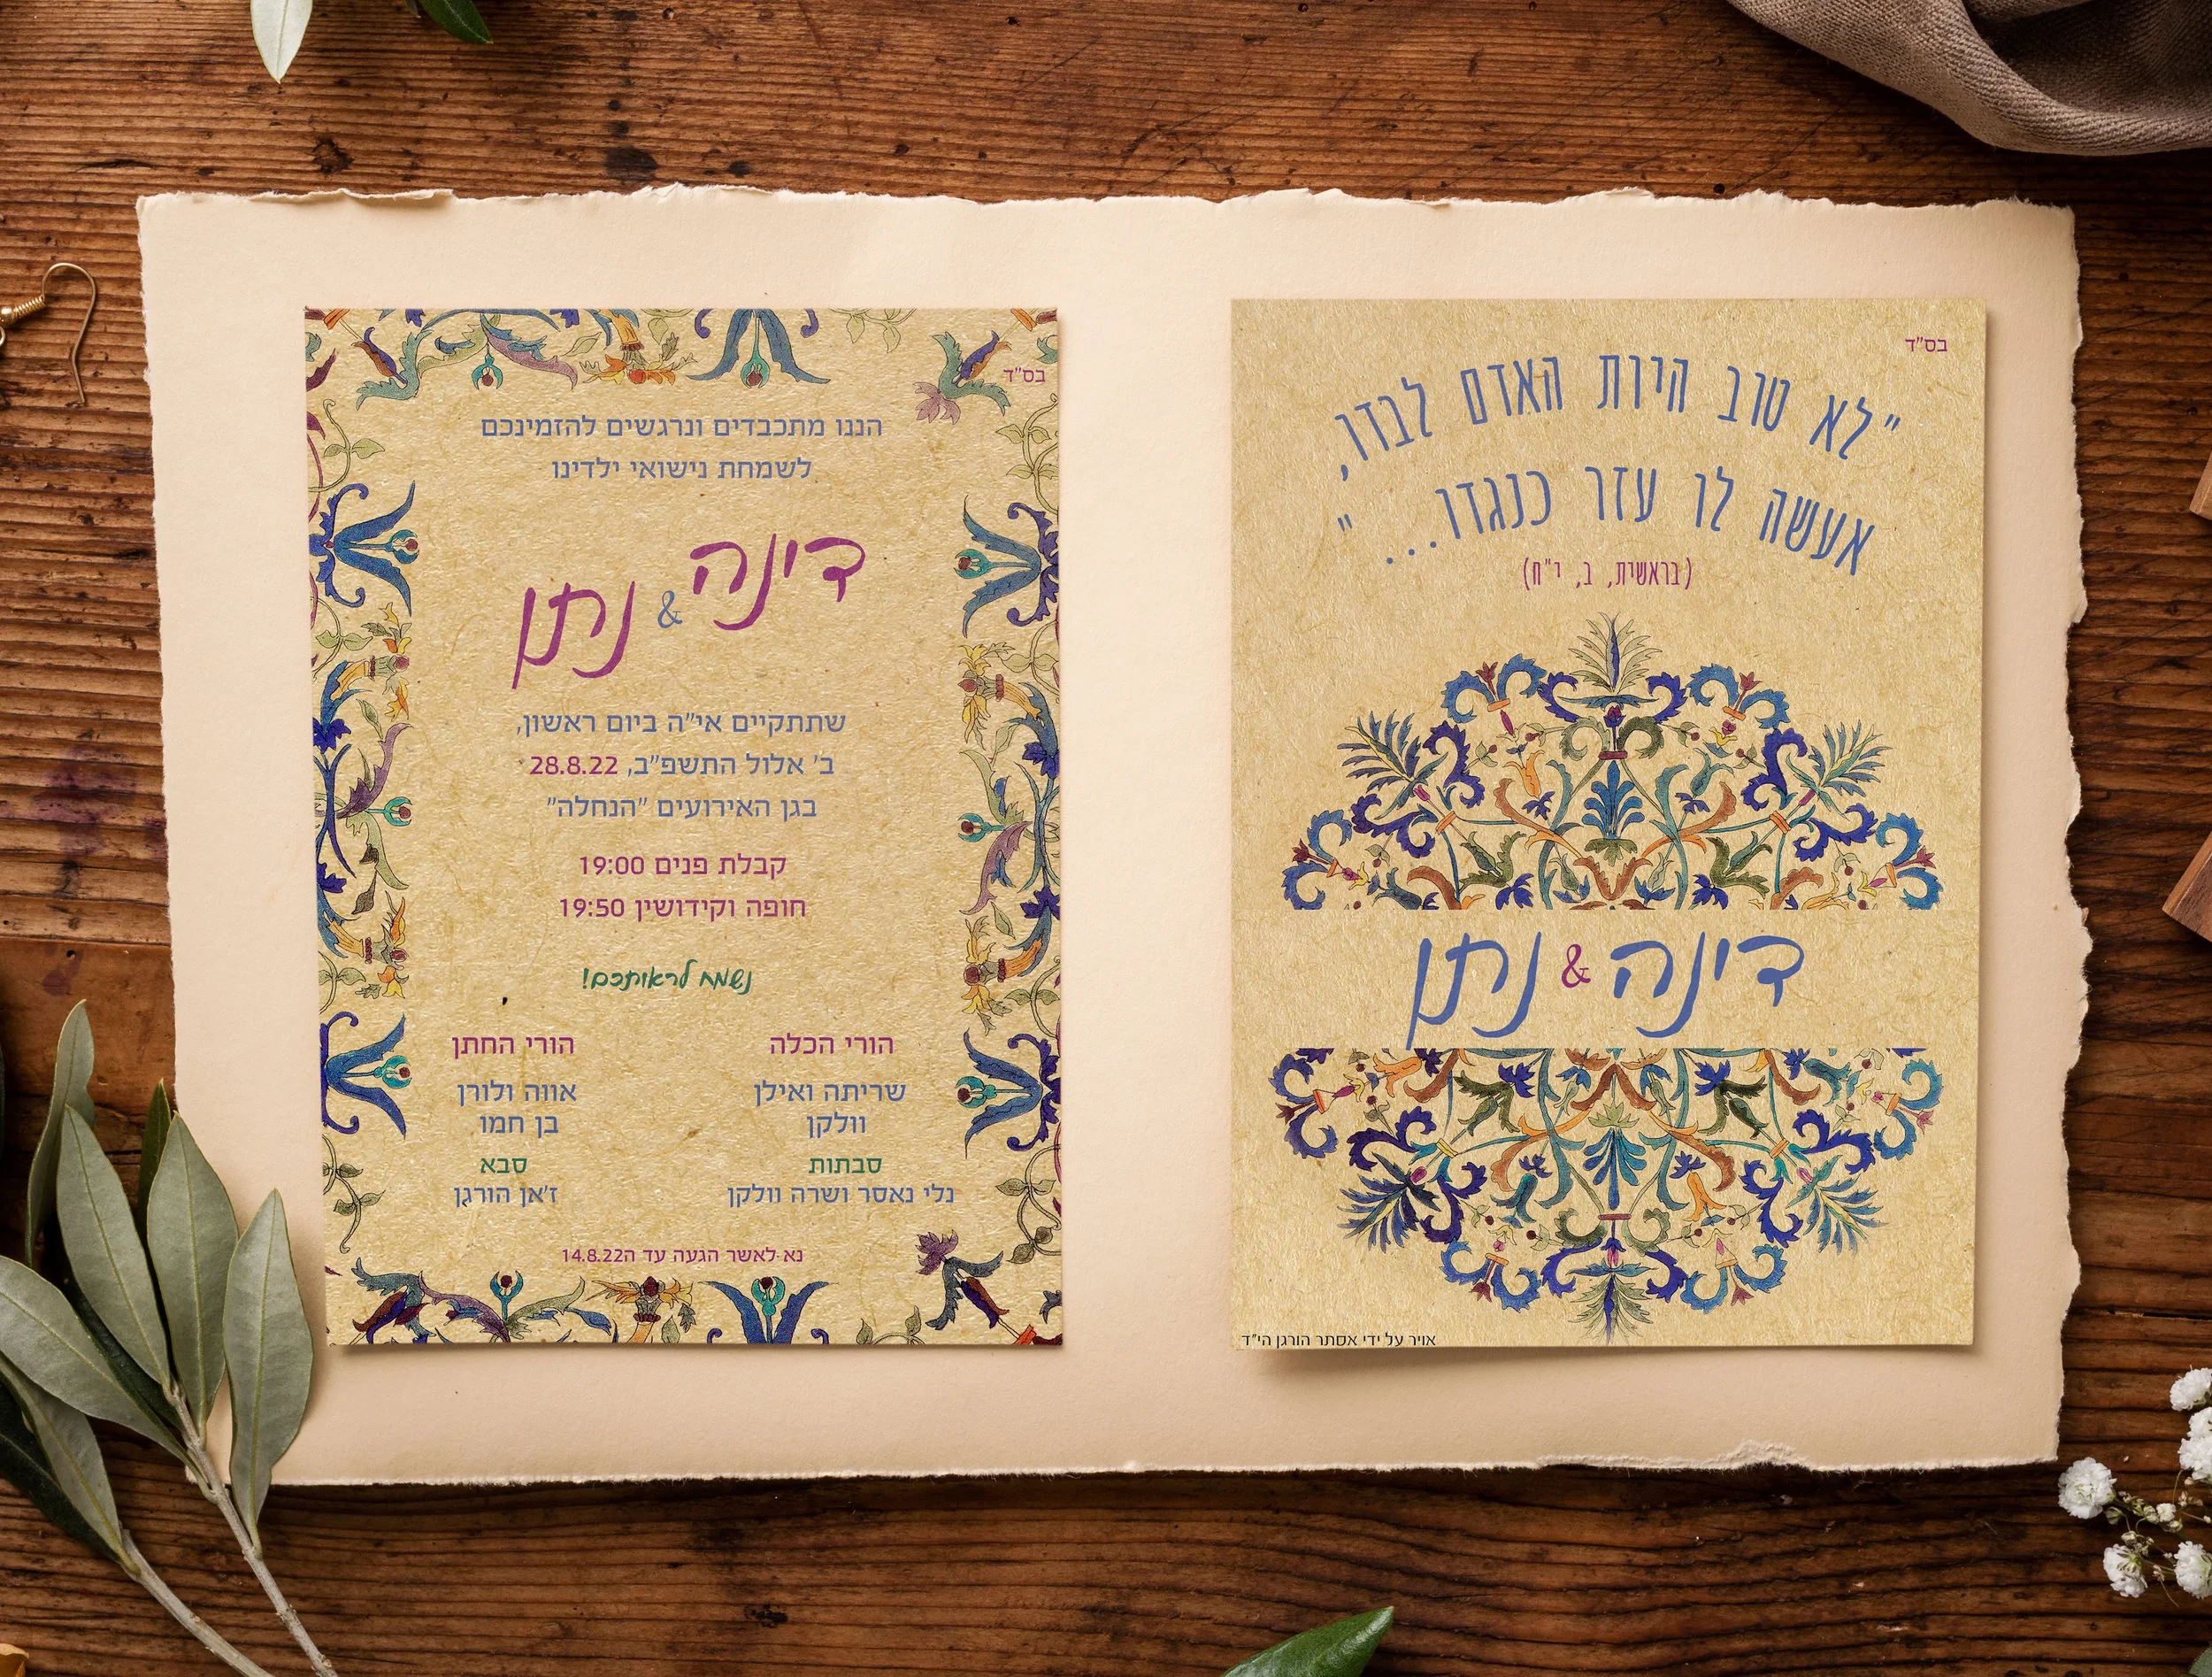 בס"ד
"לא טוב היות האדם לבדו,
אעשה לו עזר כנגדו..."
(בראשית, ב, י"ח)
דינה & נתן
אויר על ידי אסתר הורגן הי"ד
בס"ד
הננו מתכבדים ונרגשים להזמינכם
לשמחת נישואי ילדינו
דינה & נתן
שתתקיים אי"ה ביום ראשון,
ב' אלול התשפ"ב, 28.8.22
בגן האירועים "הנחלה"
קבלת פנים 19:00
חופה וקידושין 19:50
נשמח לראותכם!
הורי הכלה
שריתה ואילן
וולקן
סבתות
נלי נאסר ושרה וולקן
הורי החתן
אווה ולורן
בן חמו
סבא
ז'אן הורגן
נא לאשר הגעה עד ה14.8.22